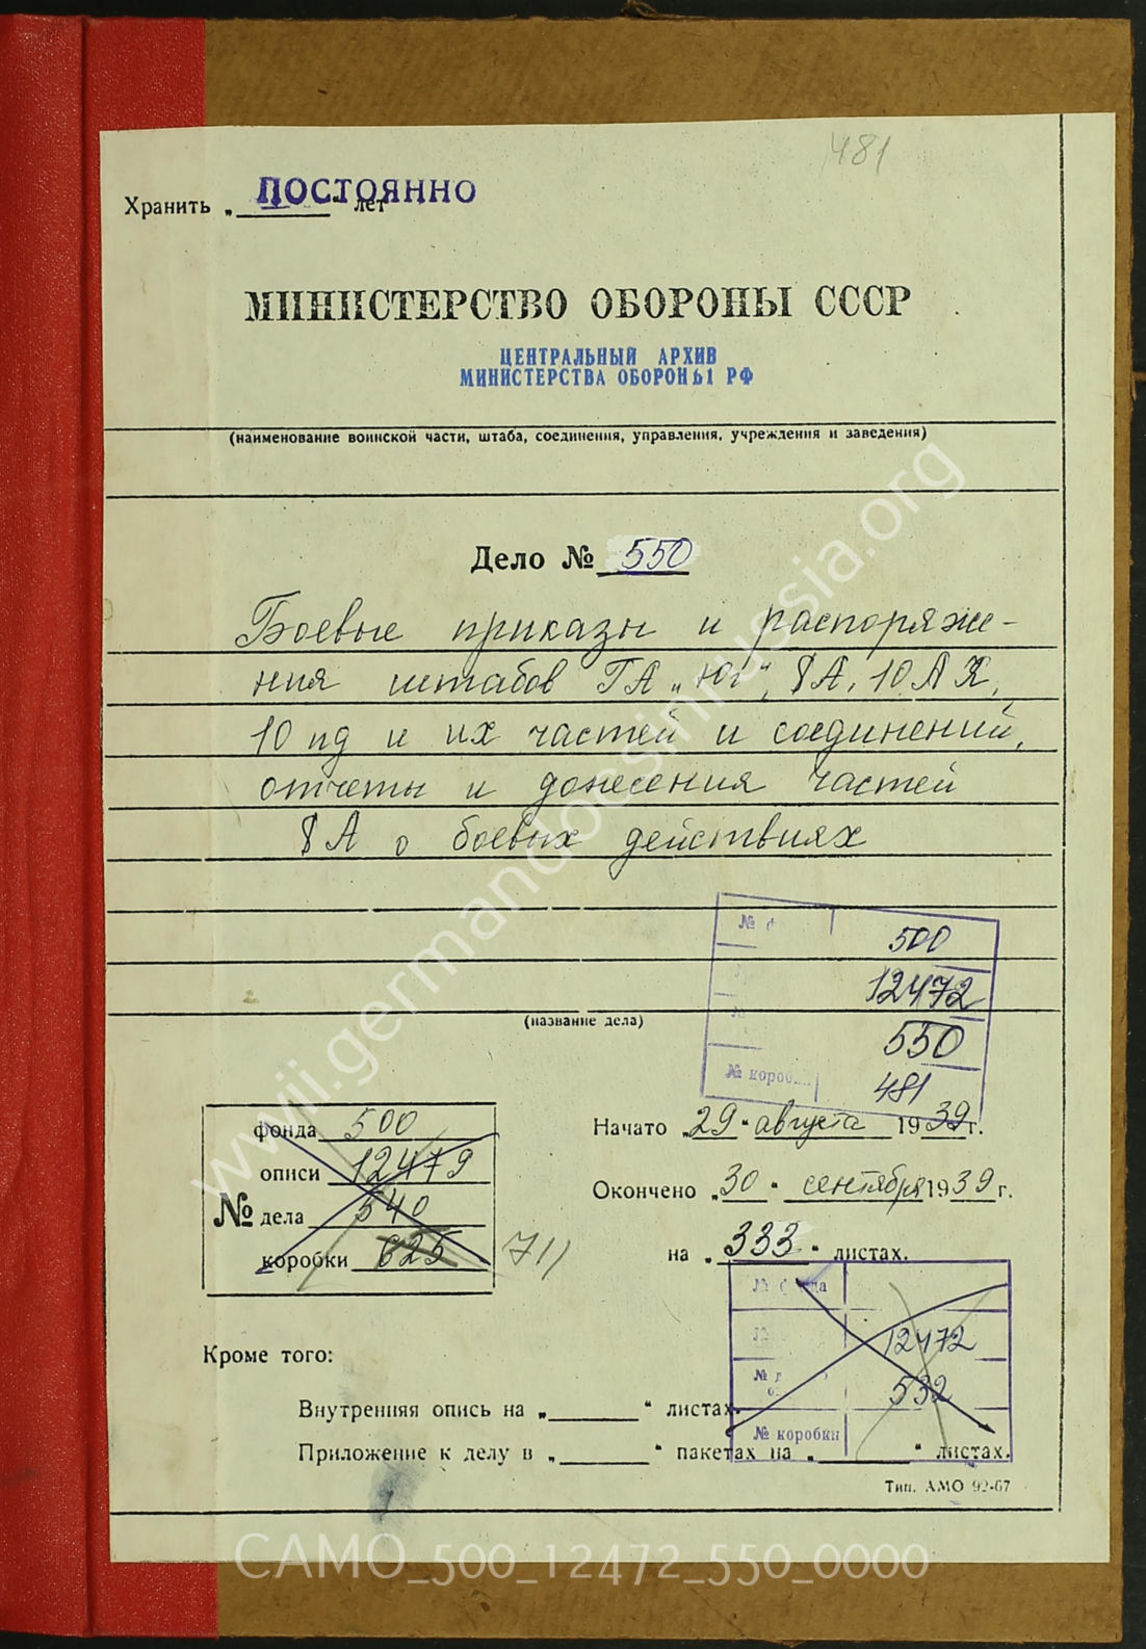 481
Хранить „ ПОСТОЯННО " лет
МИНИСТЕРСТВО ОБОРОНЫ СССР
ЦЕНТРАЛЬНЫЙ АРХИВ
МИНИСТЕРСТВА ОБОРОНЫ РФ
(наименование воинской части, штаба, соединения, управления, учреждения и заведения)
Дело № 550
Боевые приказы и распоряже-
ния штабов ГА „Юг", 8А, 10 АК,
10 пд и их частей и соединений,
отчеты и донесения частей
8А о боевых действиях
(название дела)
№ ф 500
12472
550
№ короб 481
фонда 500
описи 12479
№ дела 540
коробки 625
711
Начато „29" августа 1939г.
Окончено „30" сентября 1939г.
на „333" листах.
№ фонда
№ 12472
№ 532
№ коробки
Кроме того:
Внутренняя опись на „ " листах.
Приложение к делу в „ " пакетах на „ " листах.
Тип. АМО 92-67
www.wwii.germandocsinrussia.org
CAMO_500_12472_550_0000